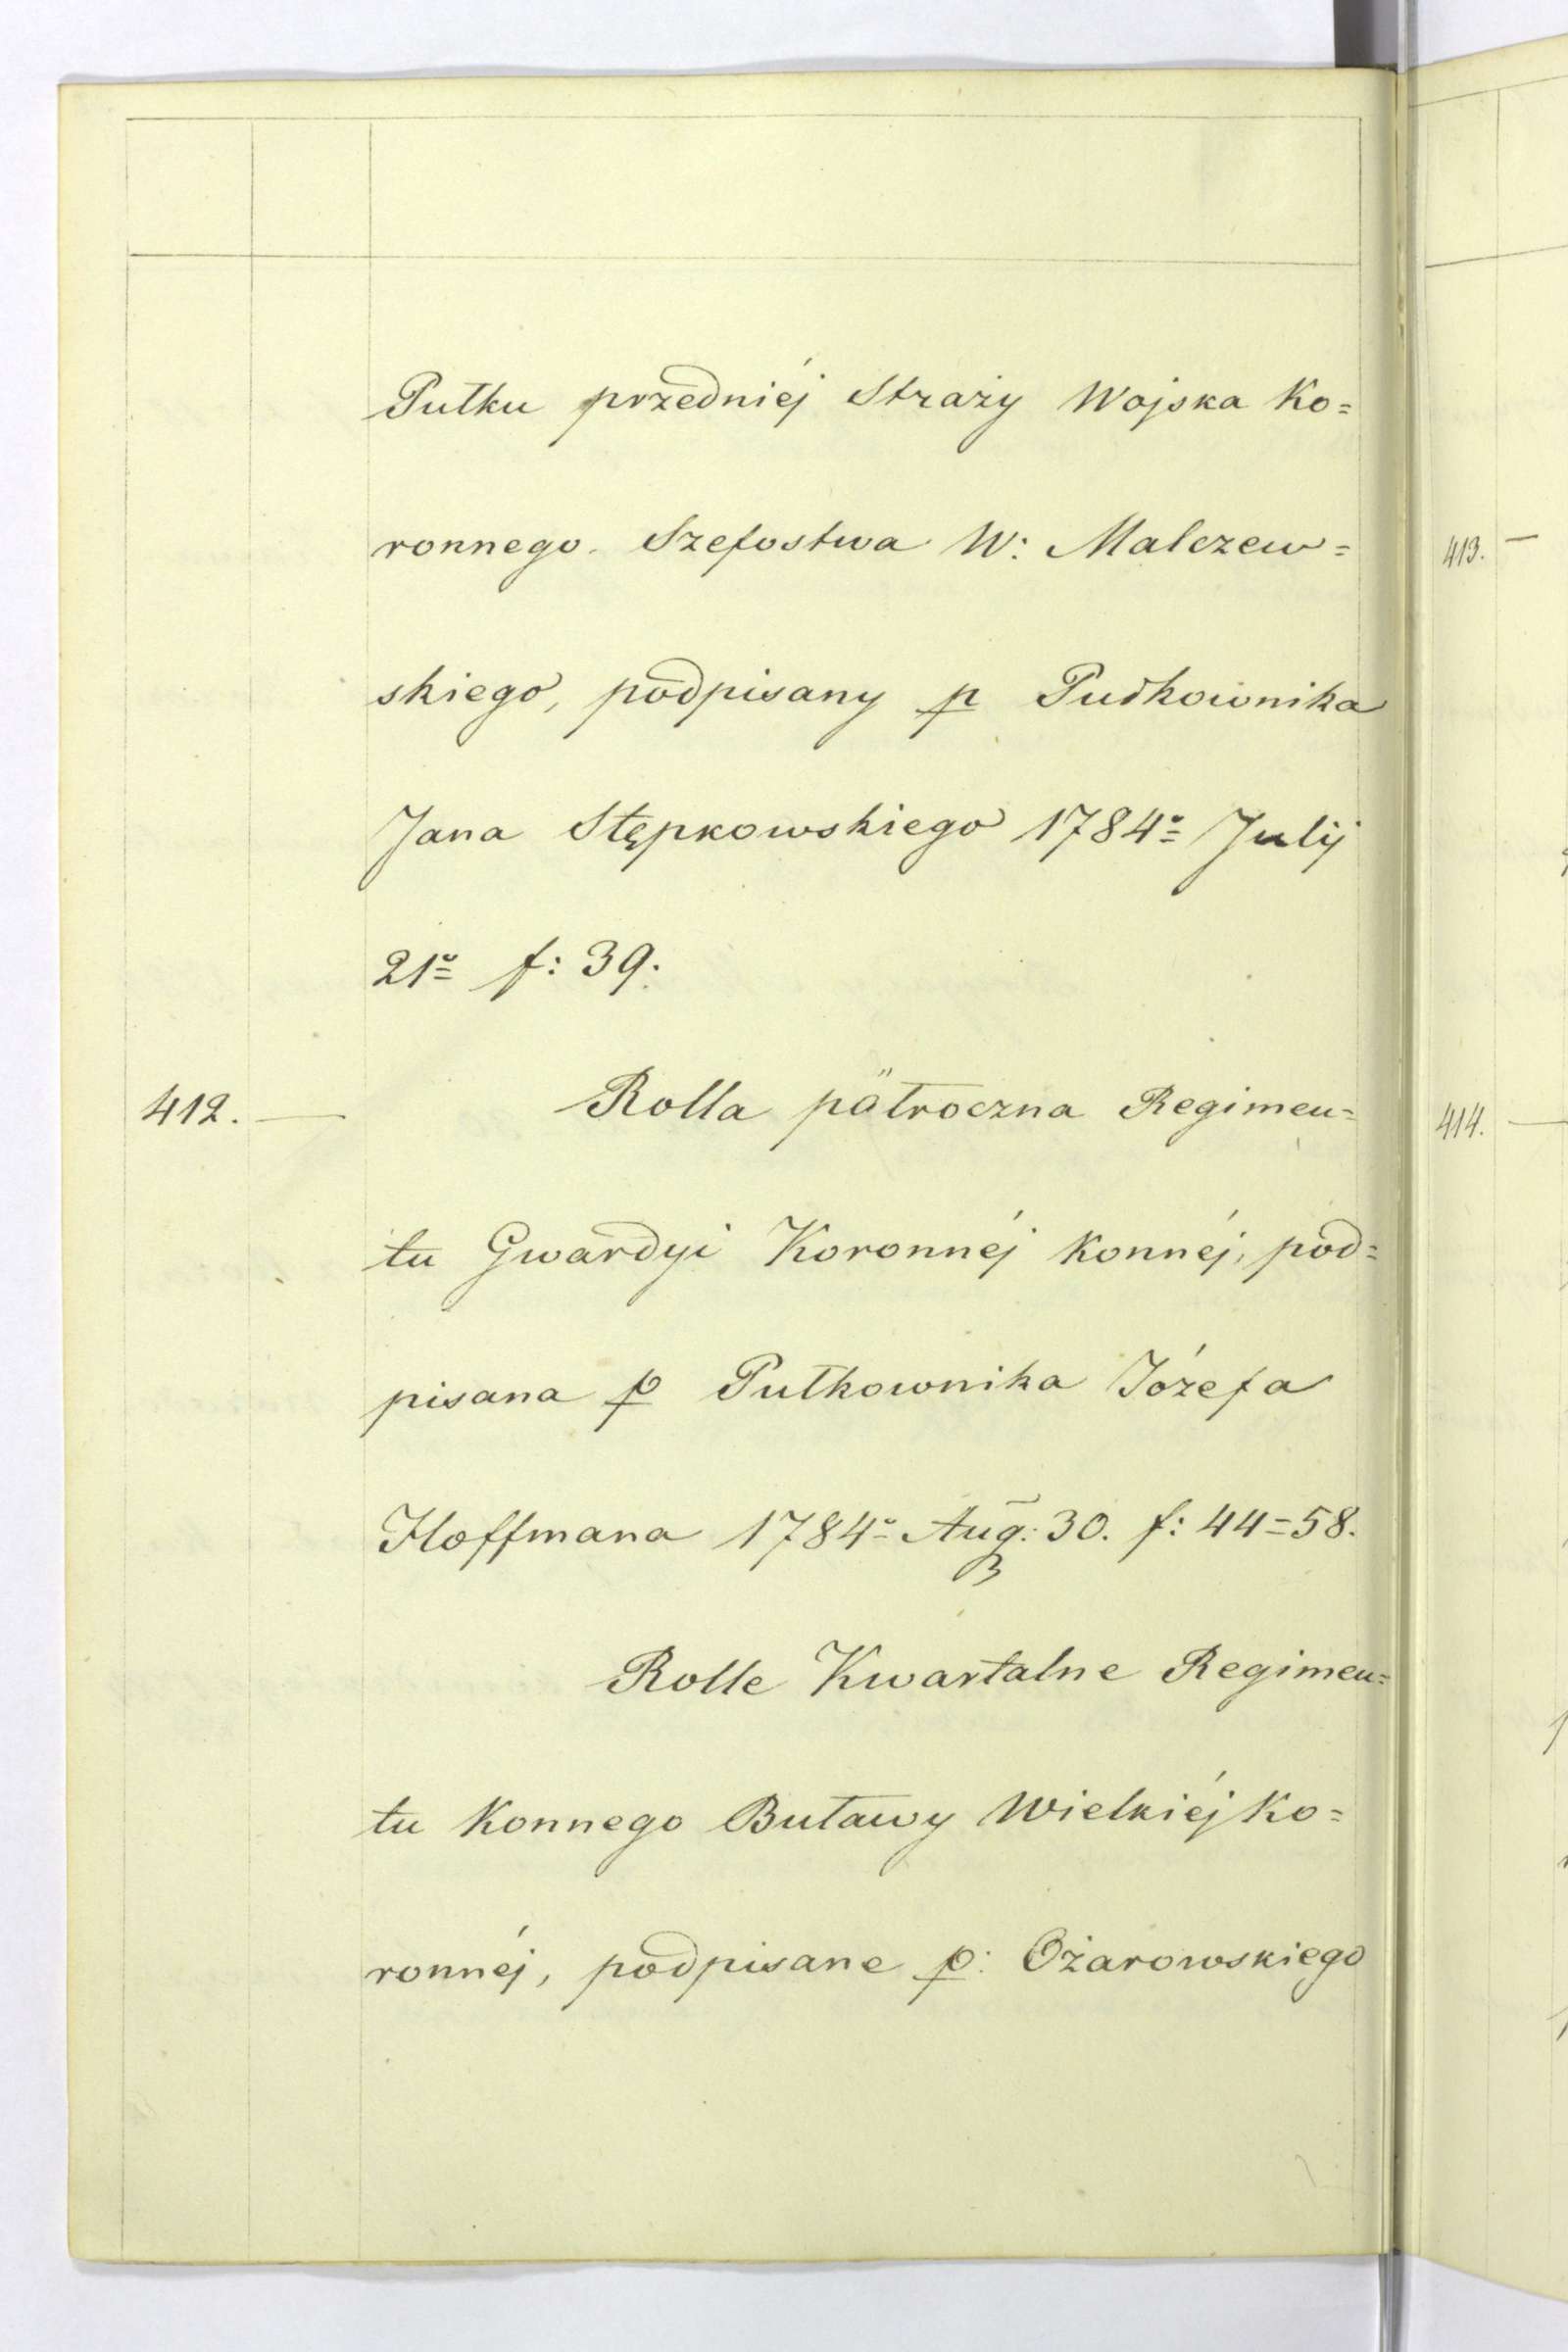 Pułku przedniéj Straży Wojska Ko=
ronnego. Szefostwa W: Malczew=
skiego, podpisany p Pułkownika
Jana Stępkowskiego 1784º Julij
21º f: 39.
412. — Rolla półroczna Regimen=
tu Gwardyi Koronnéj Konnéj, pod=
pisana p Pułkownika Józefa
Hoffmana 1784º Aug: 30. f: 44=58.
Rolle Kwartalne Regimen=
tu Konnego Buławy Wielkiéj Ko=
ronnéj, podpisane p: Ożarowskiego
413. —
414. —